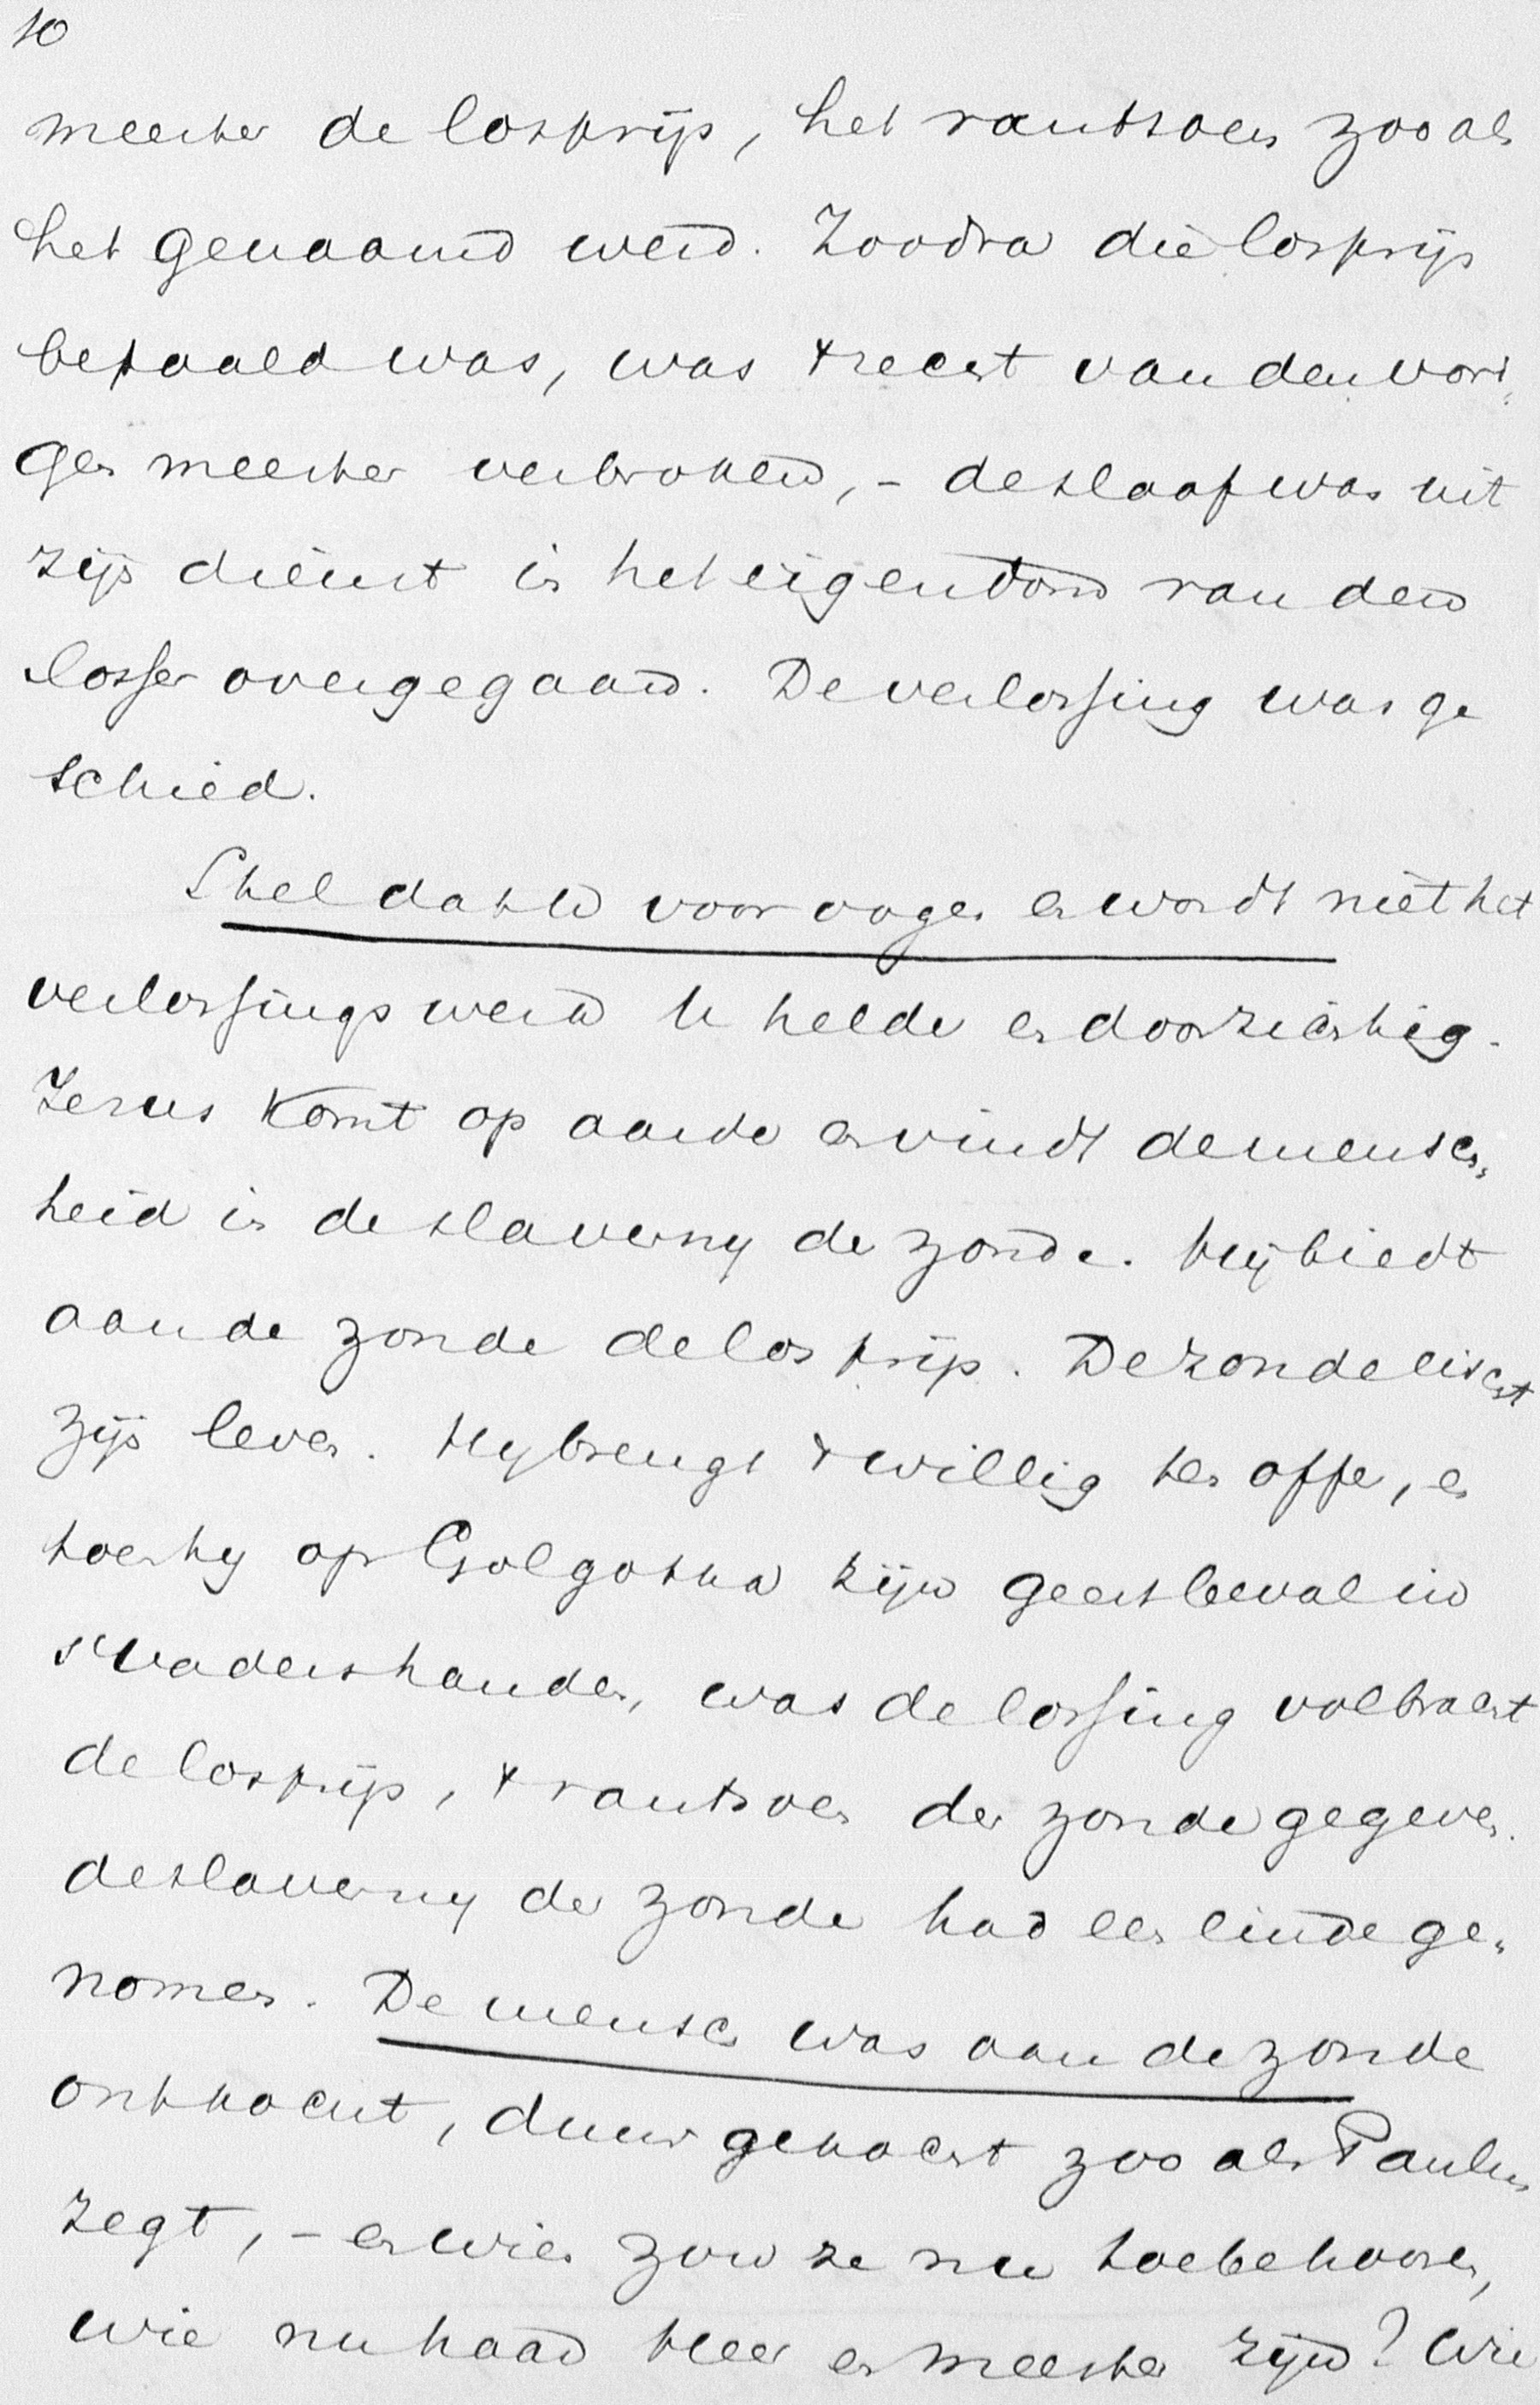 10
meester de losprijs, het rantsoen zooals
het genaamd werd. Zoodra die losprijs
betaald was, was 't recht van den vori„
gen meester verbroken, – de slaaf was uit
zijn dienst in het eigendom van den
losser overgegaan. De verlossing was ge
schied.
Stel dat U voor oogen en wordt niet het
verlossingswerk U helder en doorzichtig.
Jezus komt op aarde en vindt de mensch„
heid in de slaverny der zonde. Hij biedt
aan de zonde de losprijs. De zonde eischt
zijn leven. Hy brengt 't willig ten offer, en
toen hy op Golgotha zijn geest beval in
s'Vaders handen, was de lossing volbracht
de losprijs, 't rantsoen der zonde gegeven.
de slaverny der zonde had een einde ge„
nomen. De mensch was aan de zonde
ontkocht, duur gekocht zoo als Paulus
zegt, – en wien zou ze nu toebehooren,
wie nu haar Heer en meester zijn? Wie